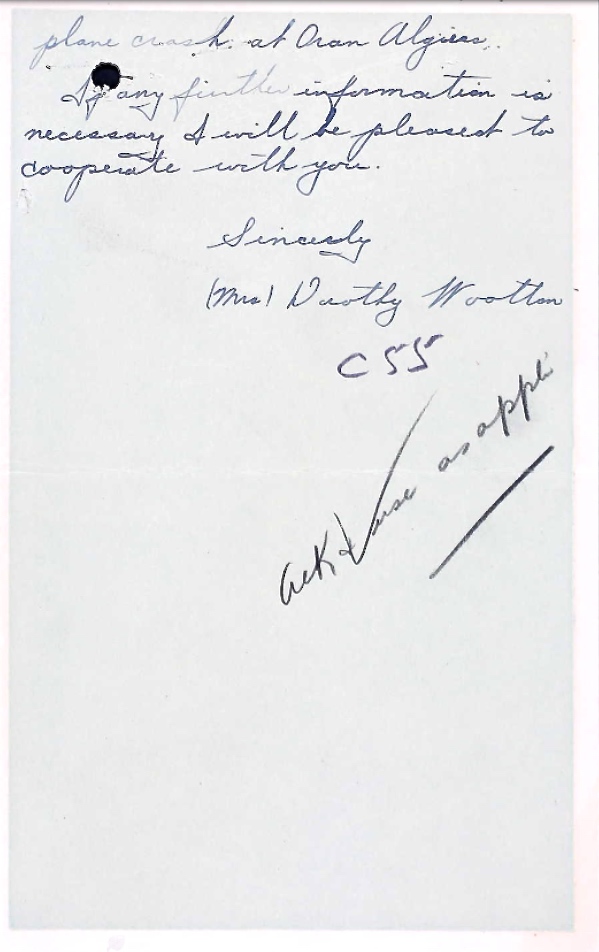 plane crash. at Oran Algiers.
If any further information is
necessary I will be pleased to
cooperate with you.
Sincerely
(Mrs) Dorothy Wootton
C55
ack & use as appli